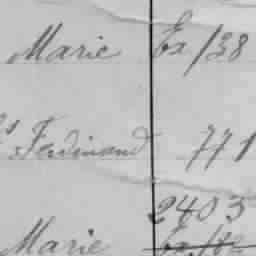 Marie Ex/38
Ferdinand 771
2403
Marie Ex/82